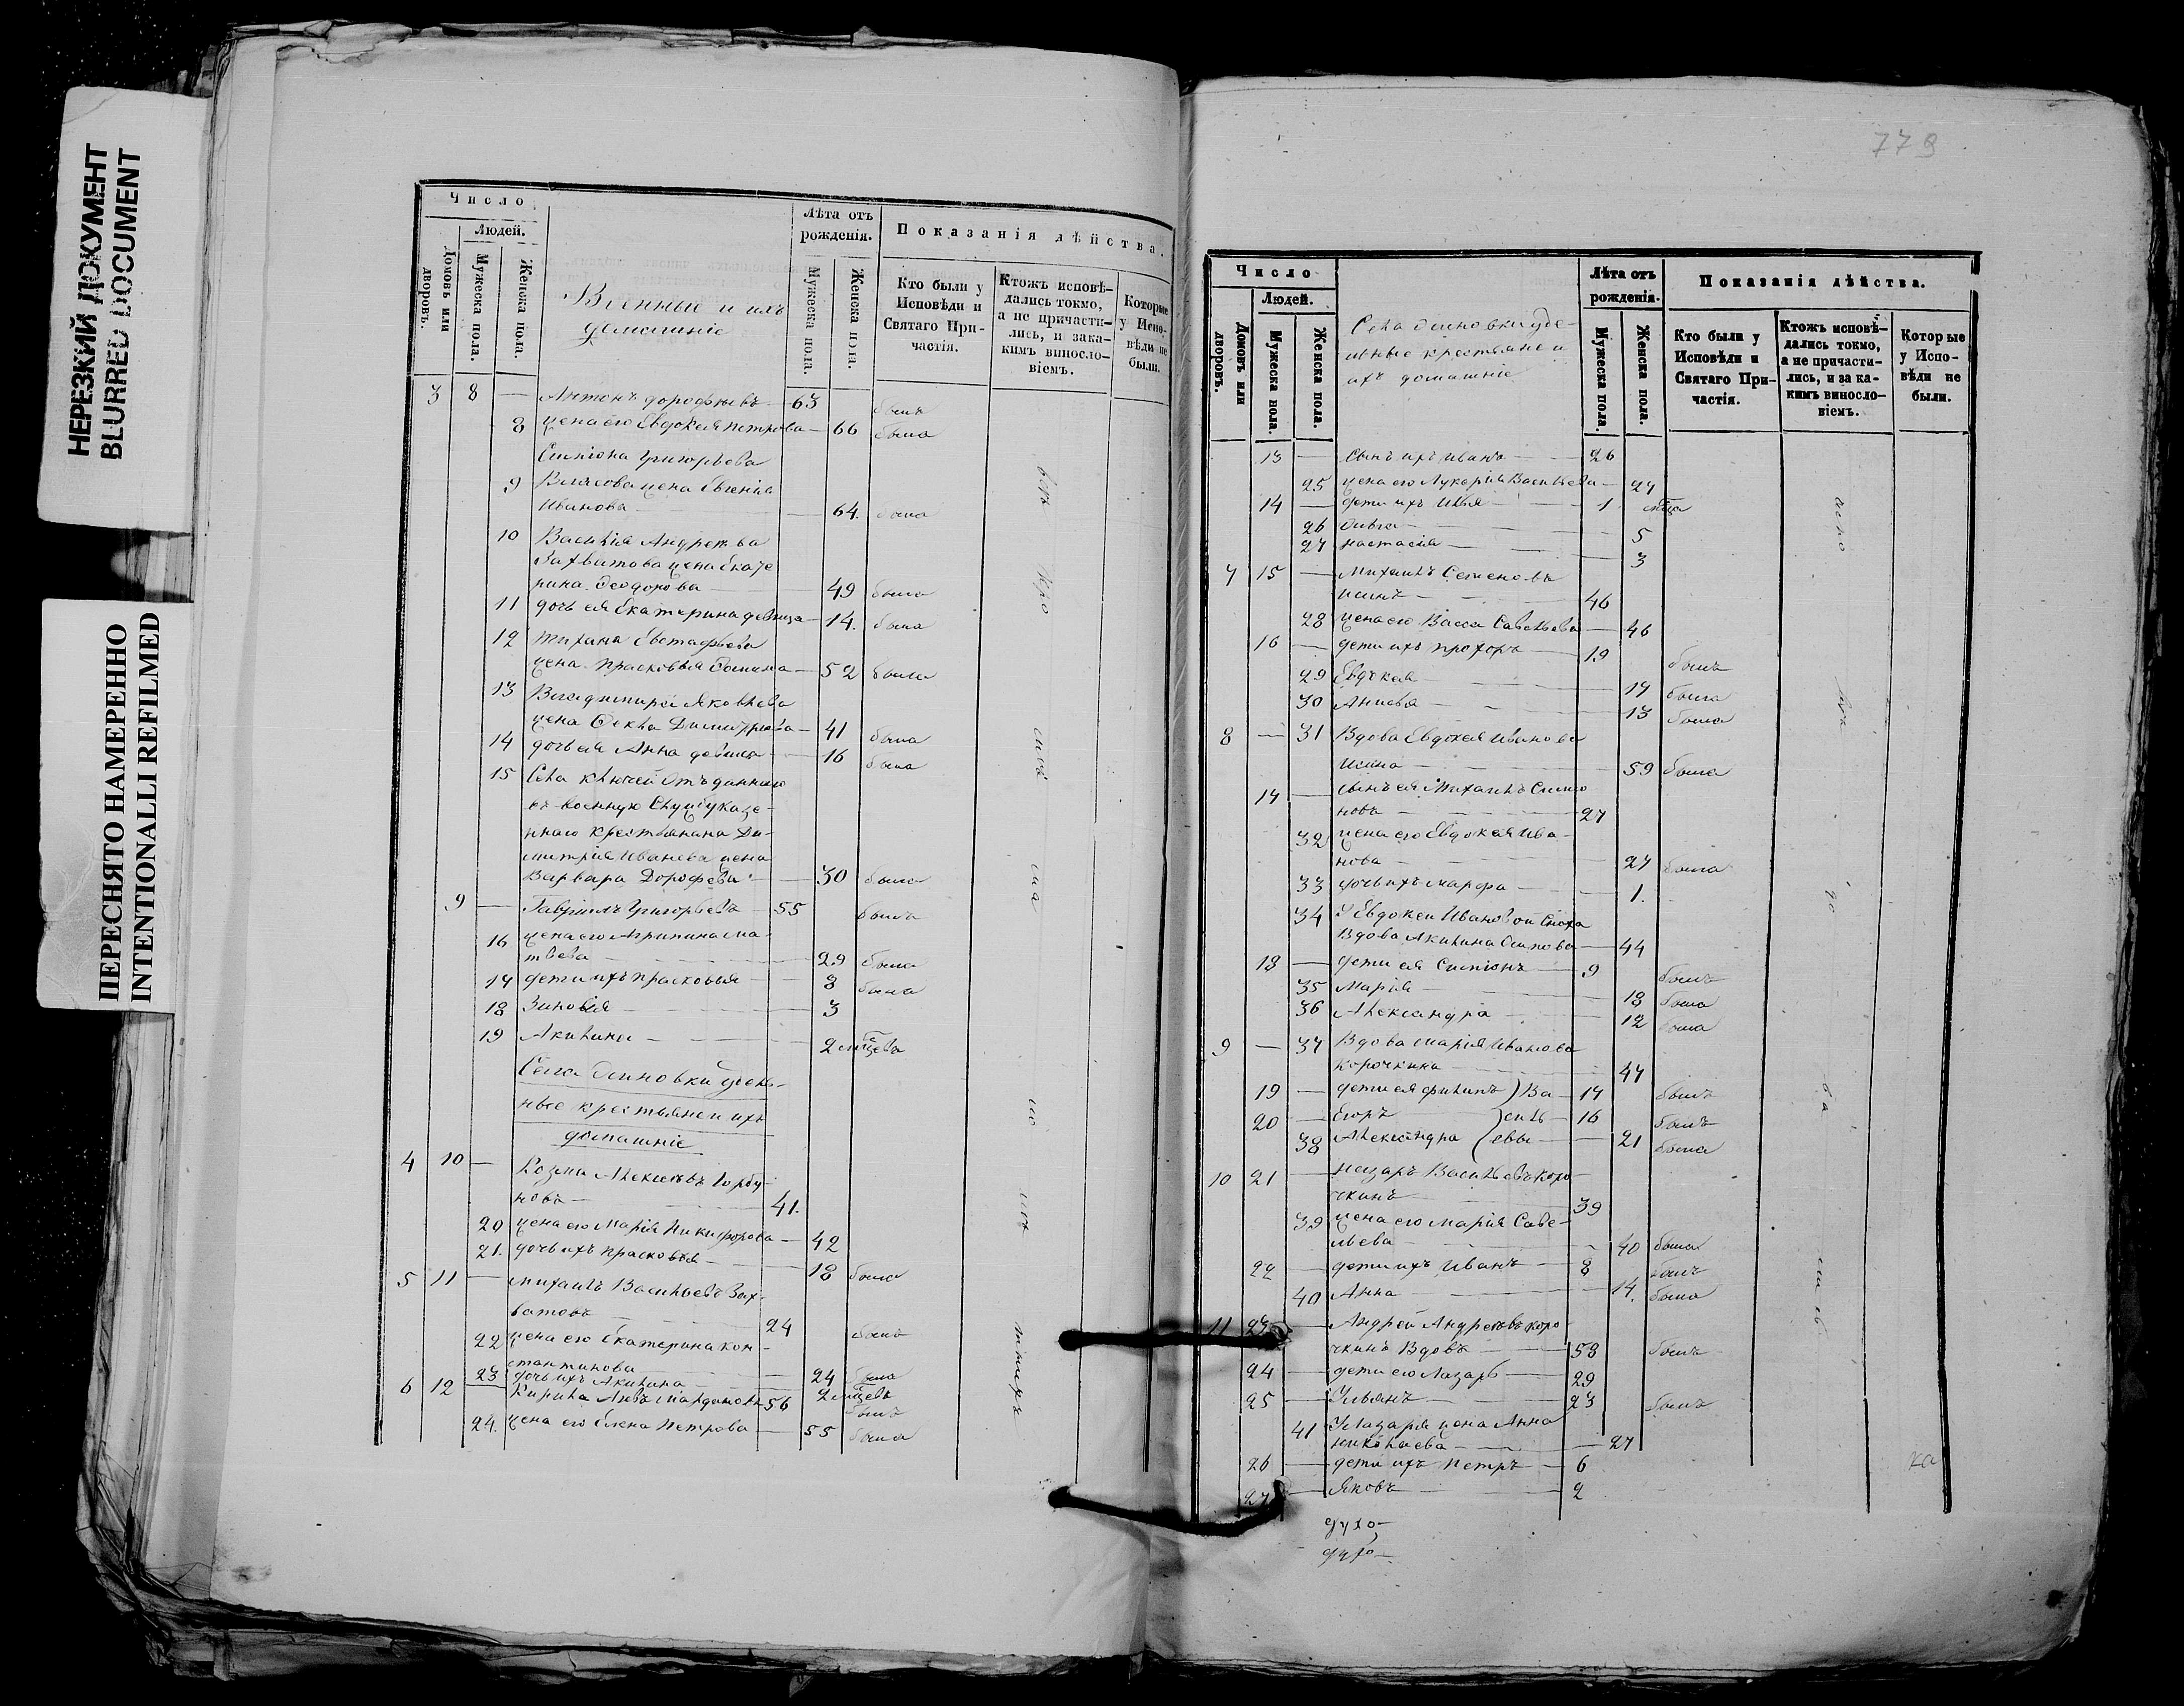 НЕРЕЗКИЙ ДОКУМЕНТ
BLURRED DOCUMENT
ПЕРЕСНЯТО НАМЕРЕННО
INTENTIONALLI REFILMED
Число
Людей.
Домовъ или дворовъ.
Мужеска пола.
Женска пола.
Военные и ихъ
домашніе
Лѣта отъ рожденія.
Мужеска пола.
Женска пола.
Показанія дѣйства.
Кто были у Исповѣди и Святаго При-частія.
Ктожъ исповѣ-дались токмо, а не причасти-лись, и зака-кимъ винословіемъ.
Которые у Испо-вѣди не были.
3 8 — Антонъ Дорофѣевъ — 63 былъ
8 жена его Евдокея Петрова — 66 была
Симіона Григорьева
9 жена Евгенія
Иванова — 64. была
10 Василія Андреева
Захватова жена Екате
рина Феодорова — 49 была
11 дочь ея Екатерина девица — 14. была
12 Тихана Евстафьева
жена Прасковья Фомина — 52 была
13 Владимира Яковлева
жена Фекла Димитріева — 41 была
14 дочь ея Анна девица — 16 была
15 Села Ключей Отъданнаго
въ военную Службу казе-
ннаго крестьянина Ди-
митрія Иванова жена
Варвара Дорофеева — 30 была
9 — Гавріилъ Григорьевъ — 55 былъ
16 жена его Агрипина Ма-
твева — 29 была
17 дети ихъ Прасковья — 8 была
18 Зиновія — 3
19 Акилина — 2 мцева
Села Осиновки удель-
ные крестьяне и ихъ
домашніе
4 10 — Козма Алексеевъ Горбу-
новъ — 41.
20 жена его Марія Никифорова — 42
21. дочь ихъ Прасковья — 18 была
5 11 — Михаилъ Васильевъ Зах-
ватовъ — 24 былъ
22 жена его Екатерина Кон-
стантинова — 24 была
23 дочь ихъ Акилина — 2 мцевъ
6 12 — Кирила — 56 былъ
24. жена его Елена Петрова — 55 была
779
Число
Людей.
Домовъ или дворовъ.
Мужеска пола.
Женска пола.
Села Осиновки уде-
льные крестьяне и
ихъ домашніе
Лѣта отъ рожденія.
Мужеска пола.
Женска пола.
Показанія дѣйства.
Кто были у Исповѣди и Святаго При-частія.
Ктожъ исповѣ-дались токмо, а не причасти-лись, и за ка-кимъ винословіемъ.
Которые у Испо-вѣди не были.
13 — Сынъ ихъ Иванъ — 26
25 жена его Лукерія Васильева — 27
14 — дети ихъ Илья — 1 мца
26 Ольга — 5
27 Настасія — 3
7 15 — Михаилъ Семеновъ
— 46
28 жена его Васса Савельева — 46
16 — дети ихъ Прохоръ — 19 былъ
29 Евдокея — 17 была
30 Анисья — 13 была
8 — 31 Вдова Евдокея Иванова
— 59 была
17 — сынъ ея Михаилъ Симио
новъ — 27
32 жена его Евдокея Ива-
нова — 27 была
33 дочь ихъ Марфа — 1.
34 У Евдокеи Ивановой Сноха
Вдова Акилина Осипова — 44
18 — дети ея Симіонъ — 9 былъ
35 Марія — 18 была
36 Александра — 12 была
9 — 37 Вдова Марія Иванова
Корочкина — 47
19 — дети ея Филипъ ) Ва — 17 былъ
20 — Егоръ ) силь — 16 былъ
38 Александра ( евы — 21 была
10 21 — Назаръ Васильевъ Коро-
чкинъ — 39
39 жена его Марія Саве-
льева — 40 была
22 — дети ихъ Иванъ — 8 былъ
40 Анна — 14. была
11 23 — Андрей Андреевъ Коро-
чкинъ Вдовъ — 58 былъ
24 — дети его Лазарь — 29
25 — Ульянъ — 23 былъ
41 У Лазаря жена Анна
Николаева — 27
26 — дети ихъ Петръ — 6
27 — Яковъ — 2
духо-
духо-